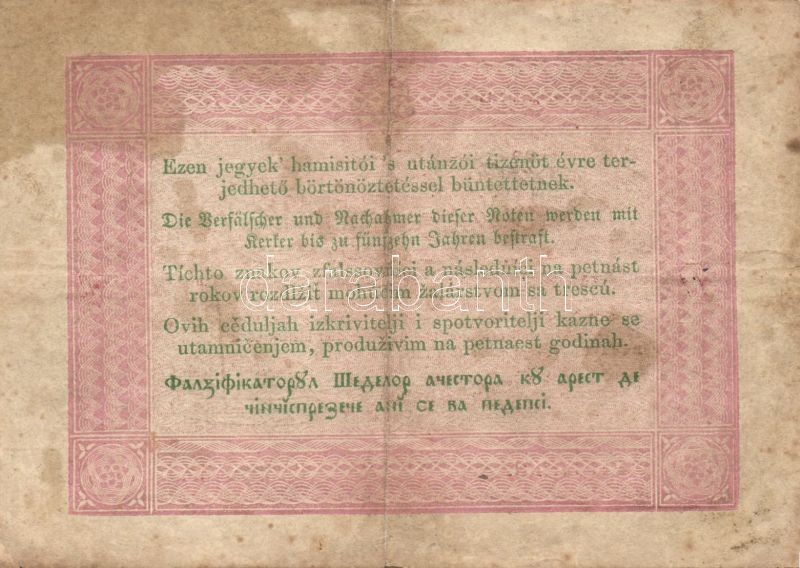 Ezen jegyek' hamisitói 's utánzói tizenöt évre ter-
jedhető börtönöztetéssel büntettetnek.
Die Verfälscher und Nachahmer dieser Noten werden mit
Kerker bis zu fünfzehn Jahren bestraft.
Tíchto znakov a pa petnást
rokov rozdlžit mohúcim žalárstvom sa trescú.
Ovih cěduljah izkrivitelji i spotvoritelji kazne se
utamničenjem, produživim na petnaest godinah.
Фалзіфікаторꙋл Шеделор ачестора кꙋ арест де
чінчіспрезече ані се ва педепсі.
darabanth